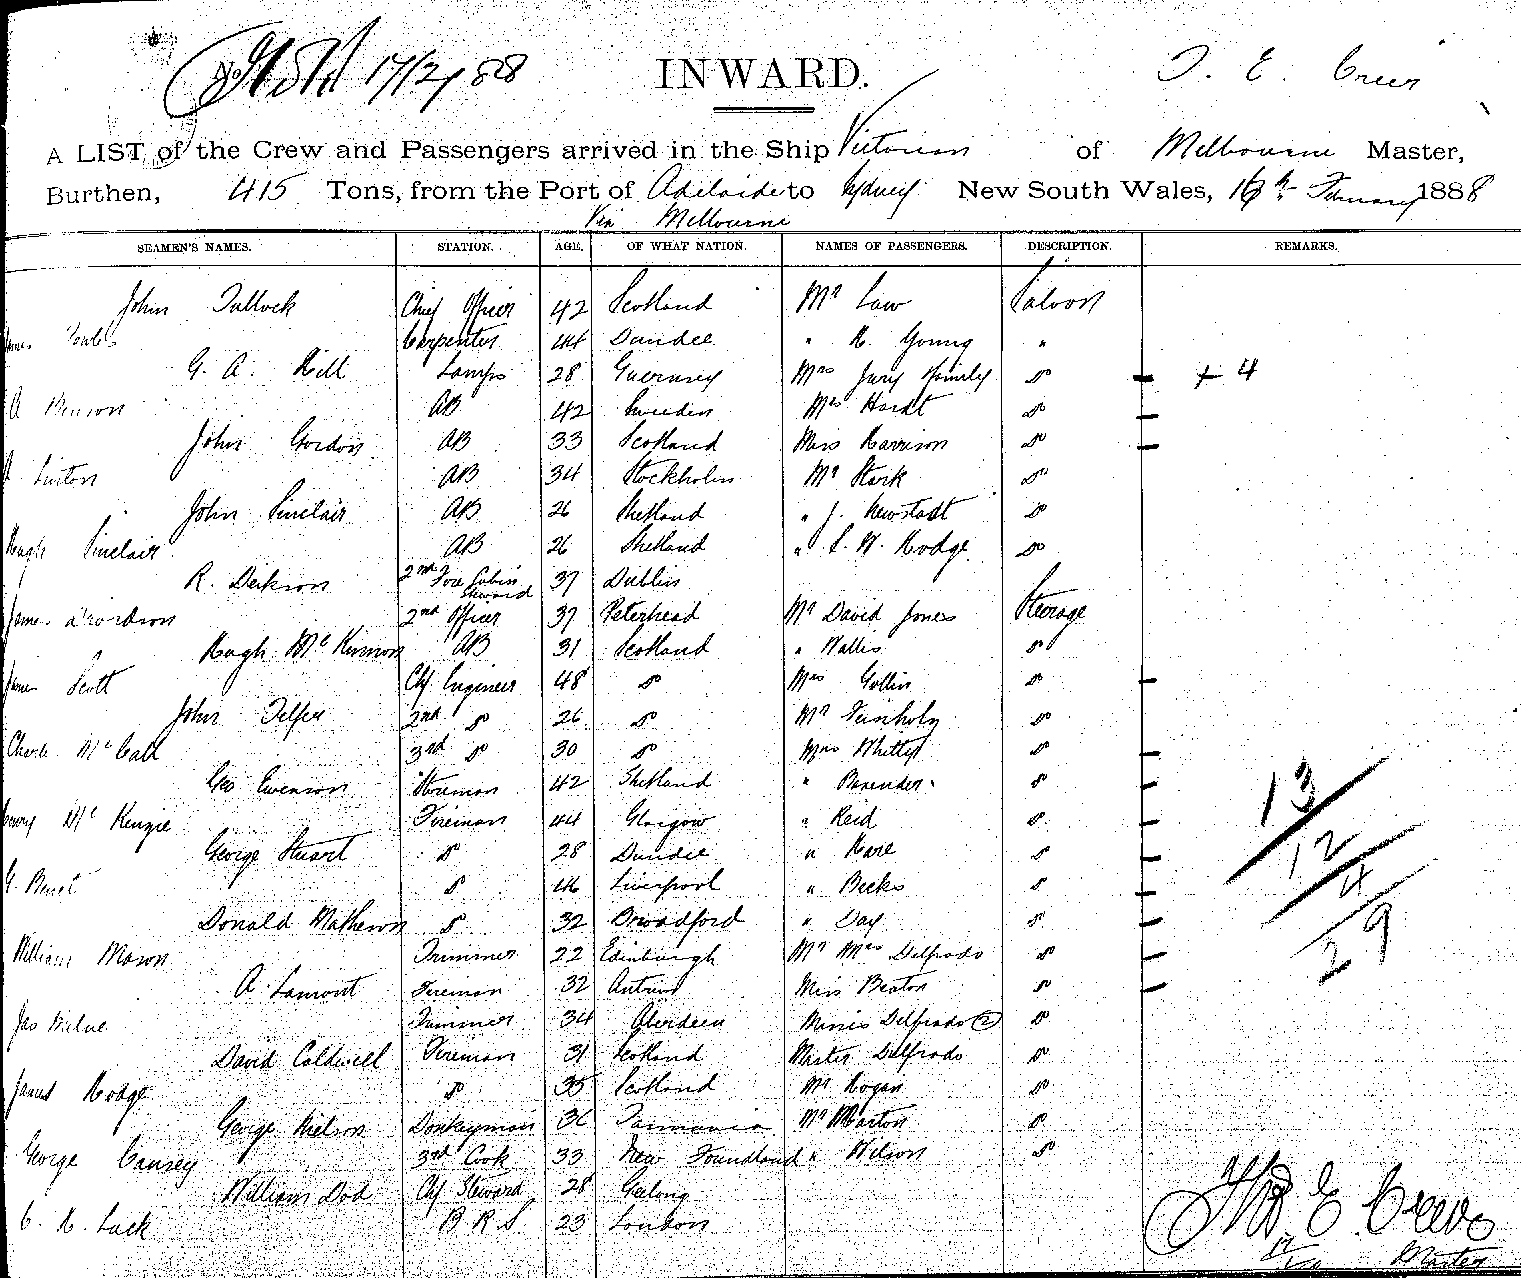 17/2/88 INWARD. T. E. Creer
A LIST of the Crew and Passengers arrived in the Ship Victorian of Melbourne Master,
Burthen, 415 Tons, from the Port of Adelaide to Sydney New South Wales, 16th February 1888
Via Melbourne
SEAMEN'S NAMES. STATION. AGE. OF WHAT NATION. NAMES OF PASSENGERS. DESCRIPTION. REMARKS.
John Tullock Chief Officer 42 Scotland Mr Law Saloon
James Carpenter 44 Dundee " H. Young "
G. A. Hill Lamps 28 Guernsey Mrs Jury Family Do + 4
A Benson AB 42 Sweden Mrs Hardt Do
John Gordon AB 33 Scotland Miss Harrison Do
Linton AB 34 Stockholm Mr Stark Do
John Sinclair AB 26 Shetland " J. Newstadt Do
Hugh Sinclair AB 26 Shetland " S. W. Hodge Do
R. Derkson 2nd Fore Cabin Steward 37 Dublin
James Davidson 2nd Officer 37 Peterhead Mr David Jones Steerage
Hugh McKinnon AB 31 Scotland " Wallis Do
James Scott Chf Engineer 48 Do Mrs Gollin Do
John Telfer 2nd Do 26 Do Mr Do
Charles McCall 3rd Do 30 Do Mrs Whitty Do
Geo Evenson Storeman 42 Shetland " Do
Henry McKenzie Fireman 44 Glasgow " Reid Do
George Stuart Do 28 Dundee " Hare Do
G. Do 46 Liverpool " Becks Do
Donald Matheson Do 32 Broadford " Day Do
William Mason Trimmer 22 Edinburgh Mr Mrs Delprado Do
A. Lamont Fireman 32 Antrim Miss Beaton Do
Jas Milne Trimmer 34 Aberdeen Misses Delprado (2) Do
David Caldwell Fireman 31 Scotland Master Delprado Do
James Hodge Do 35 Scotland Mr Hogan Do
George Nelson Donkeyman 36 Tasmania Mr Marton Do
George Causey 3rd Cook 33 New Foundland " Wilson Do
William Dod Chf Steward 28 Geelong
C. H. Luck B. R. S. 23 London
13
12
4
29
Thos E. Creer
17/2 Master